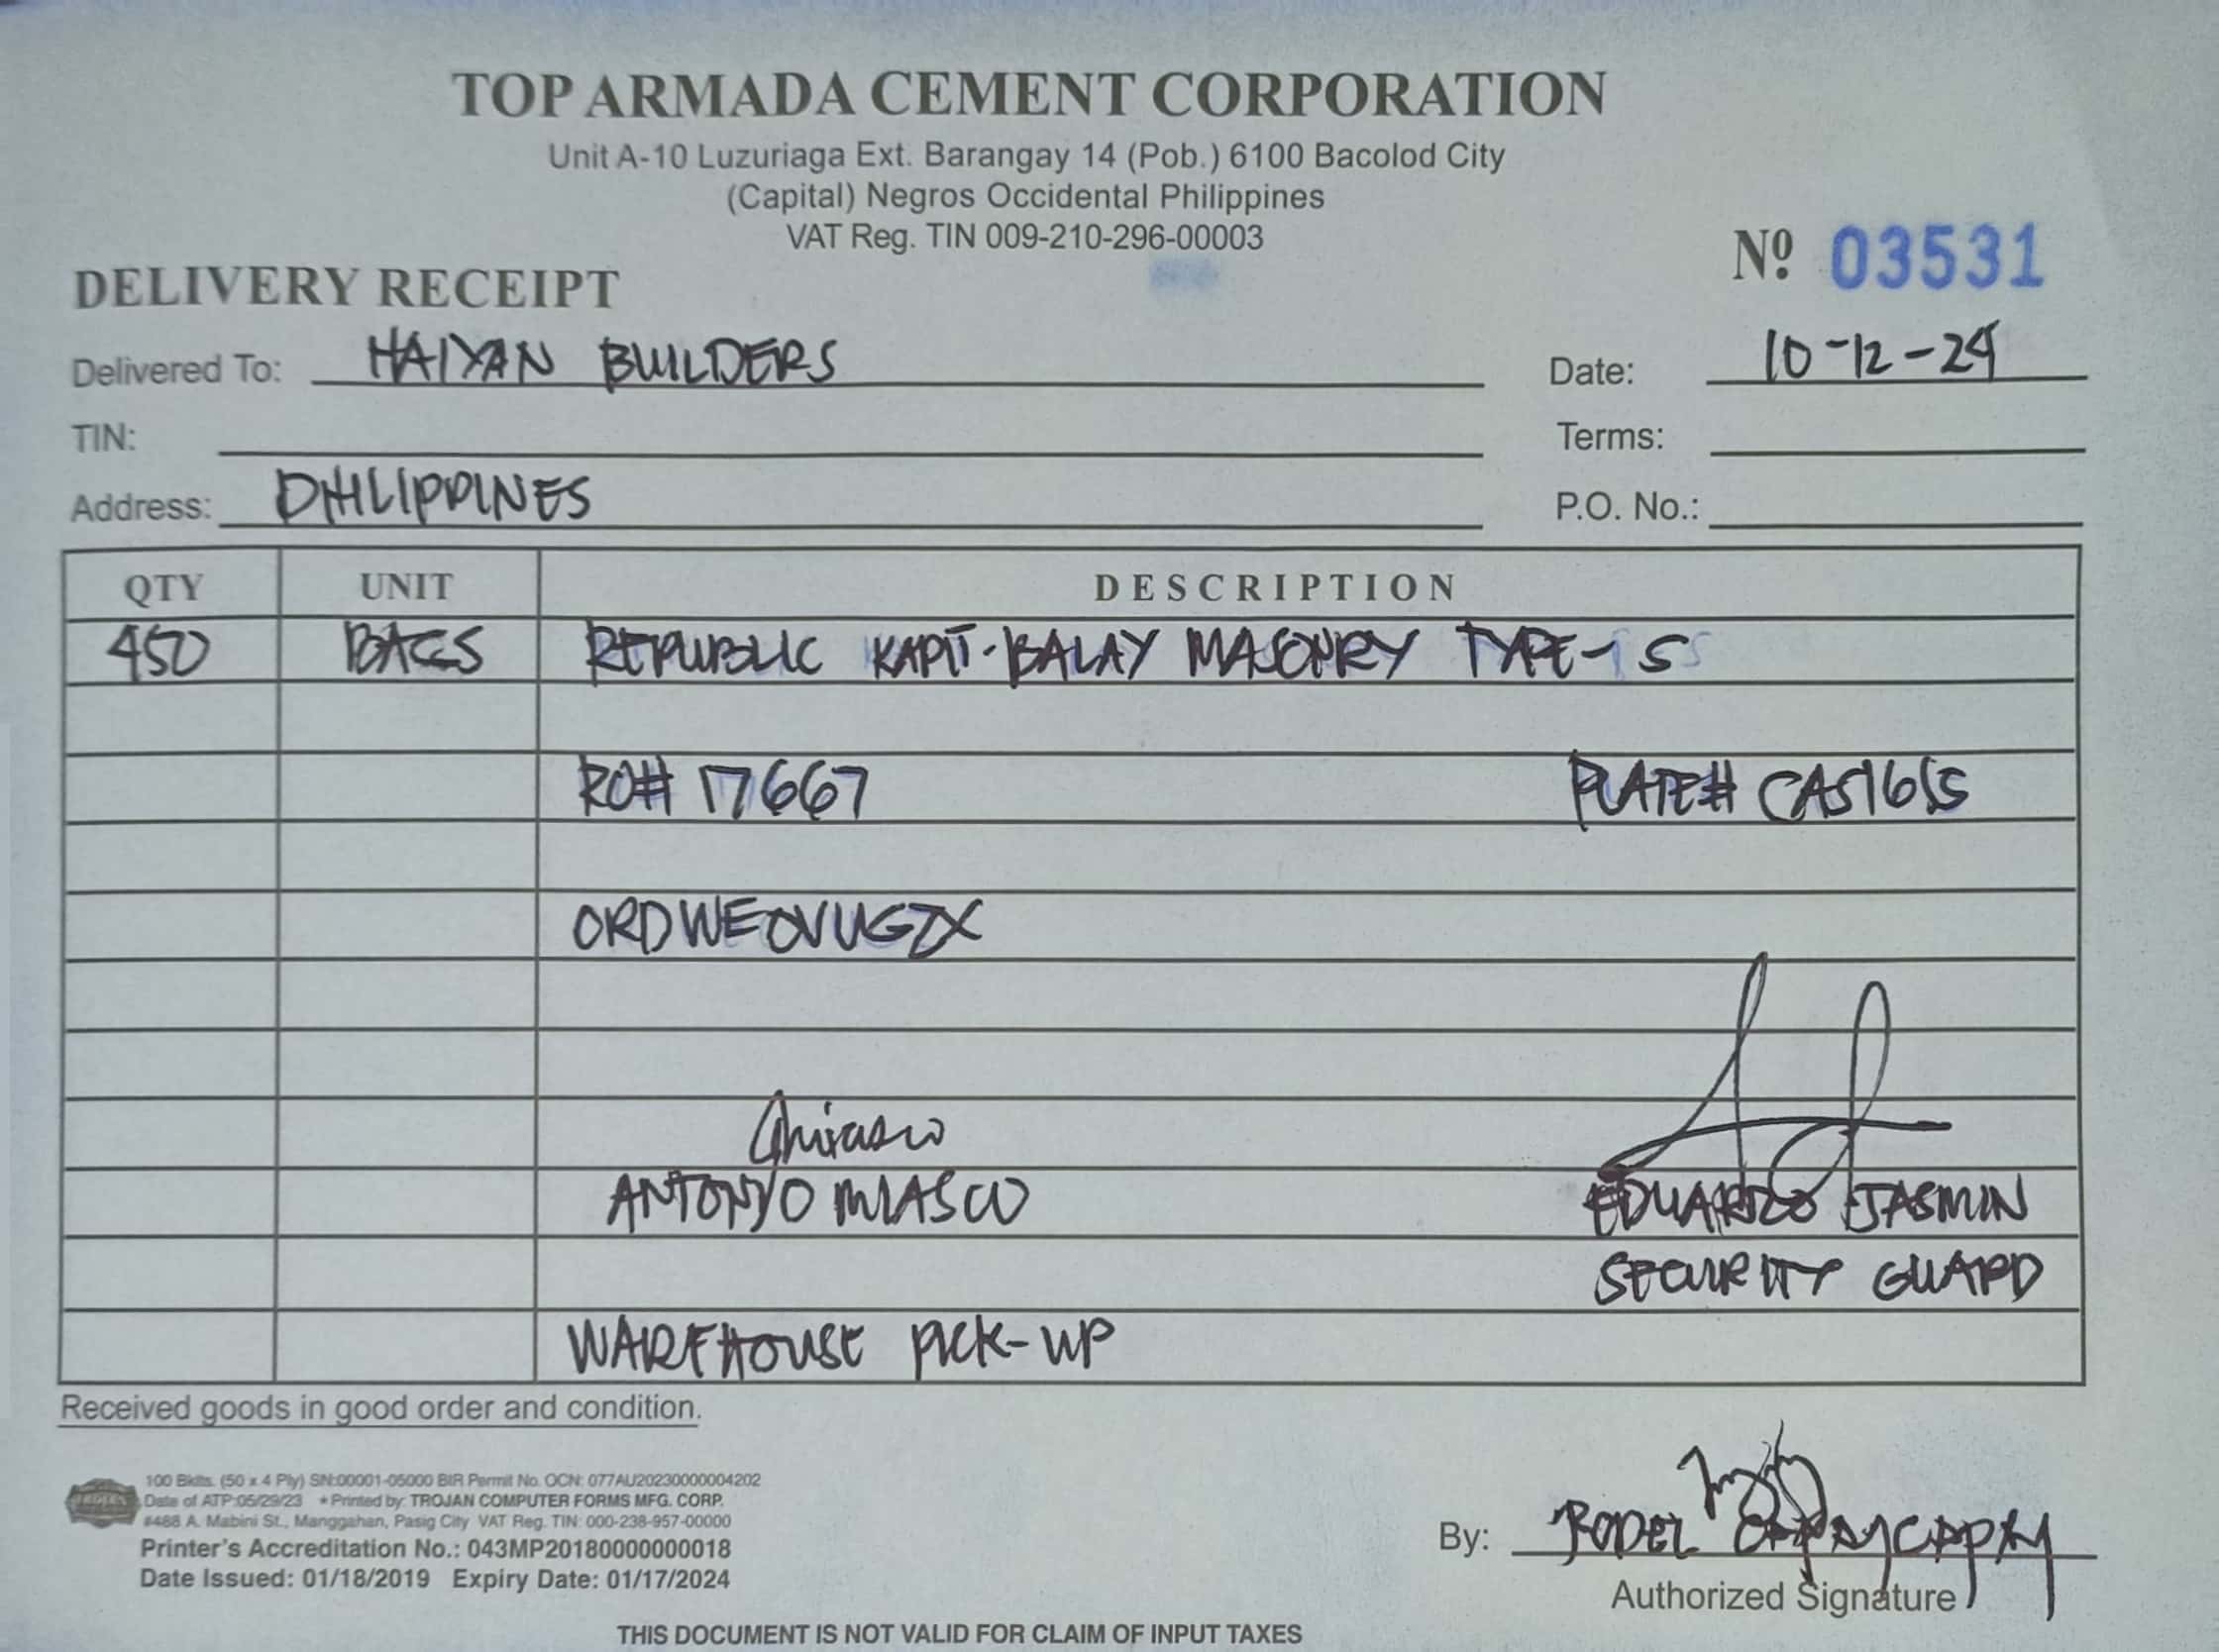 TOP ARMADA CEMENT CORPORATION
Unit A-10 Luzuriaga Ext. Barangay 14 (Pob.) 6100 Bacolod City
(Capital) Negros Occidental Philippines
VAT Reg. TIN 009-210-296-00003
Nº 03531
DELIVERY RECEIPT
Delivered To: HAIYAN BUILDERS Date: 10-12-24
TIN: Terms:
Address: PHILIPPINES P.O. No.:
QTY UNIT DESCRIPTION
450 BAGS REPUBLIC KAPIT-BALAY MASONRY TYPE-S
RO# 17667 PLATE# CAS1615
ORDWEOVUGZX
ANTONYO MIASCO EDUARDO JASMIN
SECURITY GUARD
WAREHOUSE PICK-UP
Received goods in good order and condition.
100 Bklts. (50 x 4 Ply) SN:00001-05000 BIR Permit No. OCN: 077AU20230000004202
Date of ATP:05/29/23 * Printed by: TROJAN COMPUTER FORMS MFG. CORP.
#488 A. Mabini St., Manggahan, Pasig City VAT Reg. TIN: 000-238-957-00000
Printer's Accreditation No.: 043MP20180000000018
Date Issued: 01/18/2019 Expiry Date: 01/17/2024
By: RODEL
Authorized Signature
THIS DOCUMENT IS NOT VALID FOR CLAIM OF INPUT TAXES